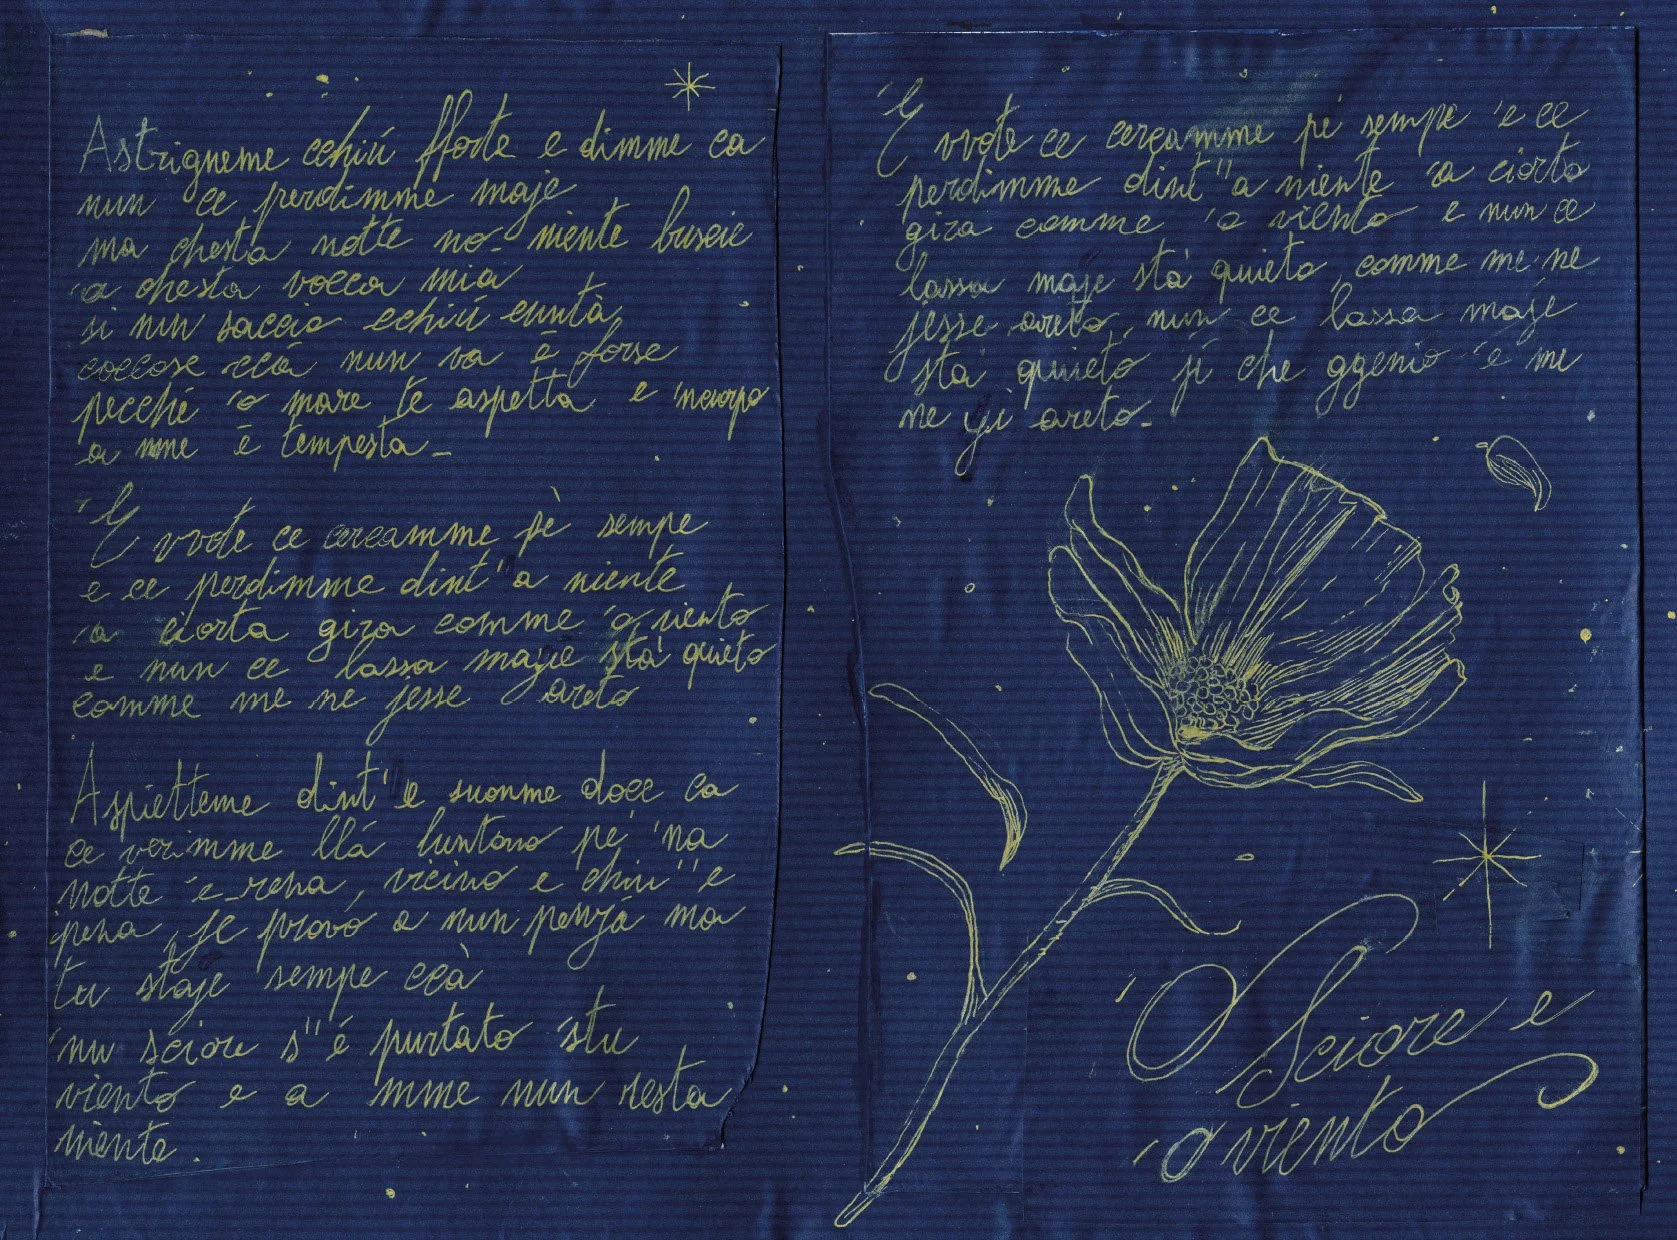 Astrigneme cchiú fforte e dimme ca
nun ce perdimme maje
ma chesta notte no- niente buscie
'a chesta vocca mia
si nun saccio cchiú cuntà,
coccose ccá nun va è forse
pecché 'o mare te aspetta e 'ncuorpo
a mme è tempesta_
'E vvote ce cercamme pè sempe
e ce perdimme dint''a niente
'a ciorta gira comme 'o viento
e nun ce lassa maje stá quieto
comme me ne jesse areto
Aspietteme dint'e suonne doce ca
ce verimme llá luntano pe' 'na
notte 'e rena, vicino e chiu''e
pena, je provo a nun penzá ma
tu staje sempe ccà
'nu sciore s''é purtato 'stu
viento e a mme nun resta
niente.
'E vvote ce cercamme pé sempe 'e ce
perdimme dint''a niente 'a ciorta
gira comme 'o viento e nun ce
lassa maje stá quieto, comme me ne
jesse areto, nun ce lassa maje
stá quieto jí che ggenio 'e me
ne yi areto_
'O Sciore e
'o viento